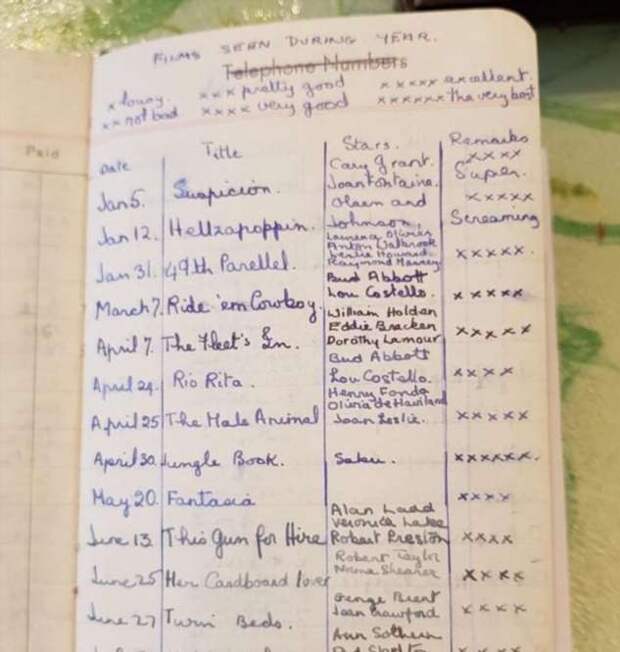 Paid
FILMS SEEN DURING YEAR.
Telephone Numbers
x lousy. xxx pretty good xxxxx excellent.
xx not bad xxxx very good xxxxxx the very best
Date Title Stars. Remarks
Cary Grant. xxxx
Jan 5. Suspicion. Joan Fontaine. Super.
Olsen and xxxxx
Jan 12. Hellzapoppin. Johnson. Screaming
Laurence Olivier
Anton Walbrook
Jan 31. 49th Parellel. Leslie Howard. xxxxx.
Raymond Massey
Bud Abbott
March 7. Ride 'em Cowboy. Lou Costello. xxxxx
William Holden
Eddie Bracken
April 7. The Fleet's In. Dorothy Lamour xxxxx
Bud Abbott
April 24. Rio Rita. Lou Costello. xxxx
Henry Fonda
Olivia de Haviland
April 25 The Male Animal Joan Leslie. xxxxx
April 30. Jungle Book. Sabu. xxxxxx.
May 20. Fantasia xxxx
Alan Ladd
Veronica Lake
June 13. This Gun for Hire Robert Preston xxxx
Robert Taylor
June 25 Her Cardboard lover Norma Shearer xxxx
George Brent
June 27 Twin Beds. Joan Crawford xxxx
Ann Sothern